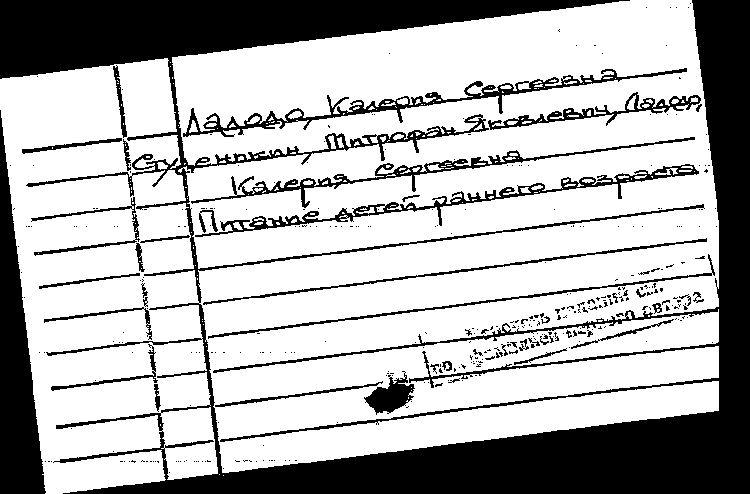 Ладодо, Калерия Сергеевна
Студеникин, Митрофан Яковлевич, Ладодо,
Калерия Сергеевна
Питание детей раннего возраста.
Перечень изданий см.
по фамилией первого автора